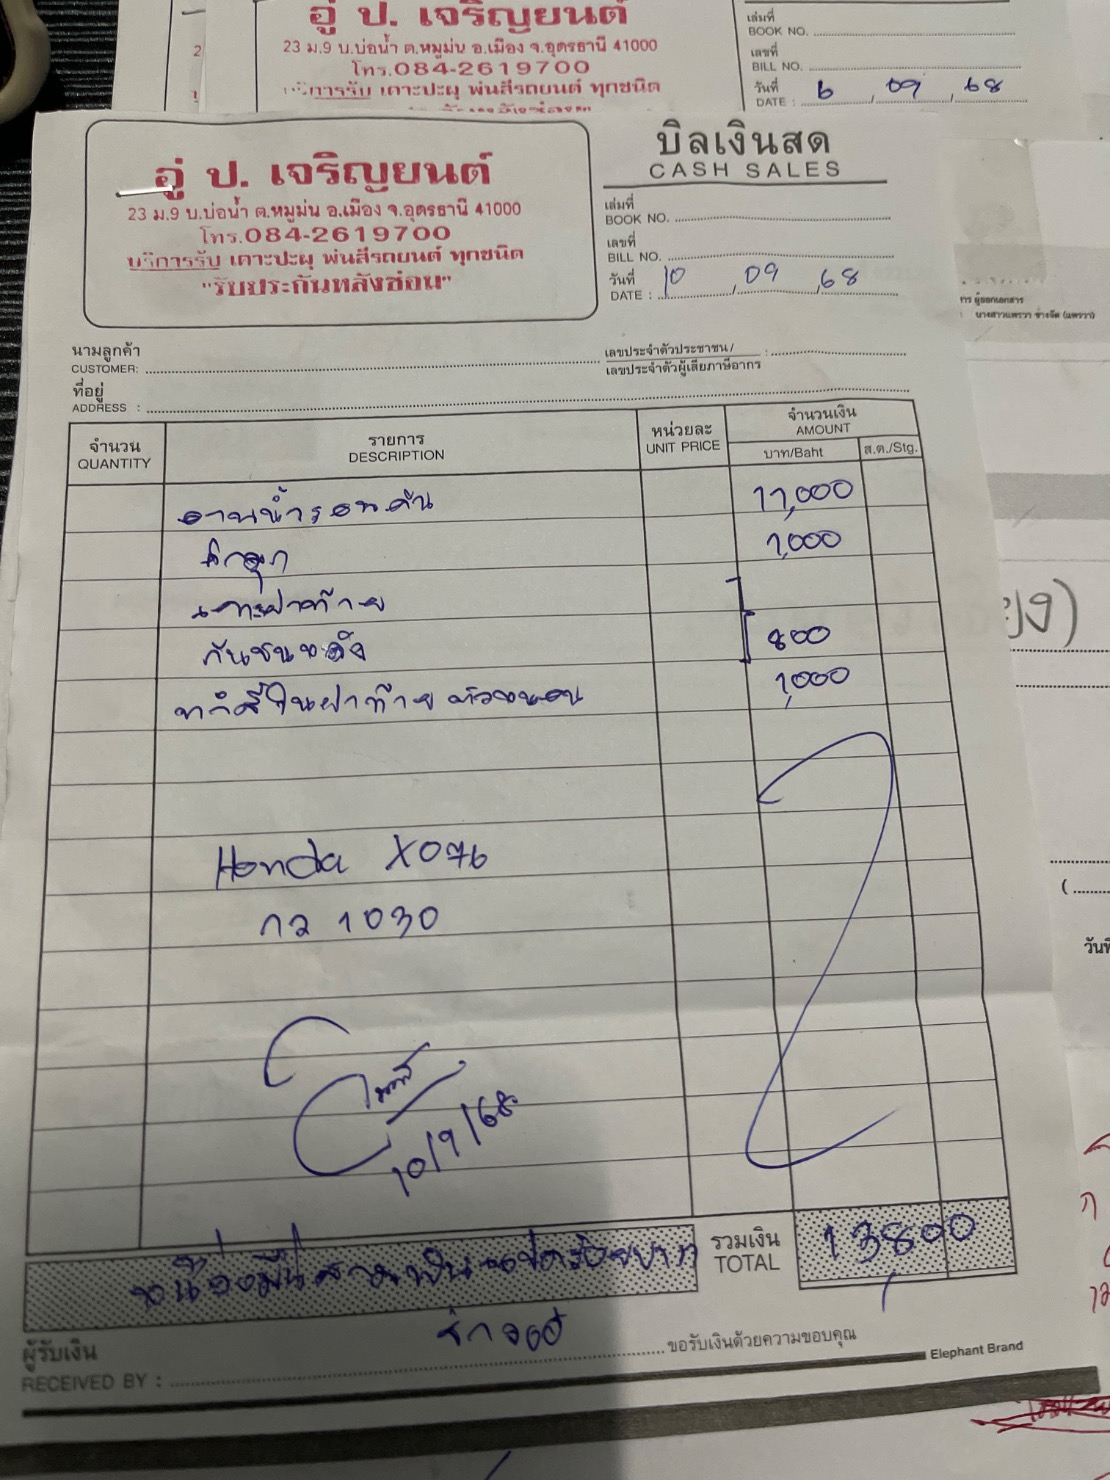 อู่ ป. เจริญยนต์
23 ม.9 บ.บ่อน้ำ ต.หมูม่น อ.เมือง จ.อุดรธานี 41000
โทร.084-2619700
บริการรับ เคาะปะผุ พ่นสีรถยนต์ ทุกชนิด
เล่มที่
BOOK NO.
เลขที่
BILL NO.
วันที่
DATE : 6 / 09 / 68
อู่ ป. เจริญยนต์
23 ม.9 บ.บ่อน้ำ ต.หมูม่น อ.เมือง จ.อุดรธานี 41000
โทร.084-2619700
บริการรับ เคาะปะผุ พ่นสีรถยนต์ ทุกชนิด
"รับประกันหลังซ่อม"
บิลเงินสด
CASH SALES
เล่มที่
BOOK NO.
เลขที่
BILL NO.
วันที่
DATE : 10 / 09 / 68
นามลูกค้า
CUSTOMER:
เลขประจำตัวประชาชน/
เลขประจำตัวผู้เสียภาษีอากร :
ที่อยู่
ADDRESS :
จำนวน QUANTITY รายการ DESCRIPTION หน่วยละ UNIT PRICE จำนวนเงิน AMOUNT
บาท/Baht ส.ต./Stg.
11,000
1,000
เคาะฝาท้าย
กันชนหลัง 800
ทำสีในฝาท้าย 1,000
Honda X076
กว 1030
10/9/68
หนึ่งหมื่นสามพันแปดร้อยบาท รวมเงิน TOTAL 13800
ผู้รับเงิน
RECEIVED BY :
ขอรับเงินด้วยความขอบคุณ
Elephant Brand
ยง)
นางสาวแพรวา
วันที่